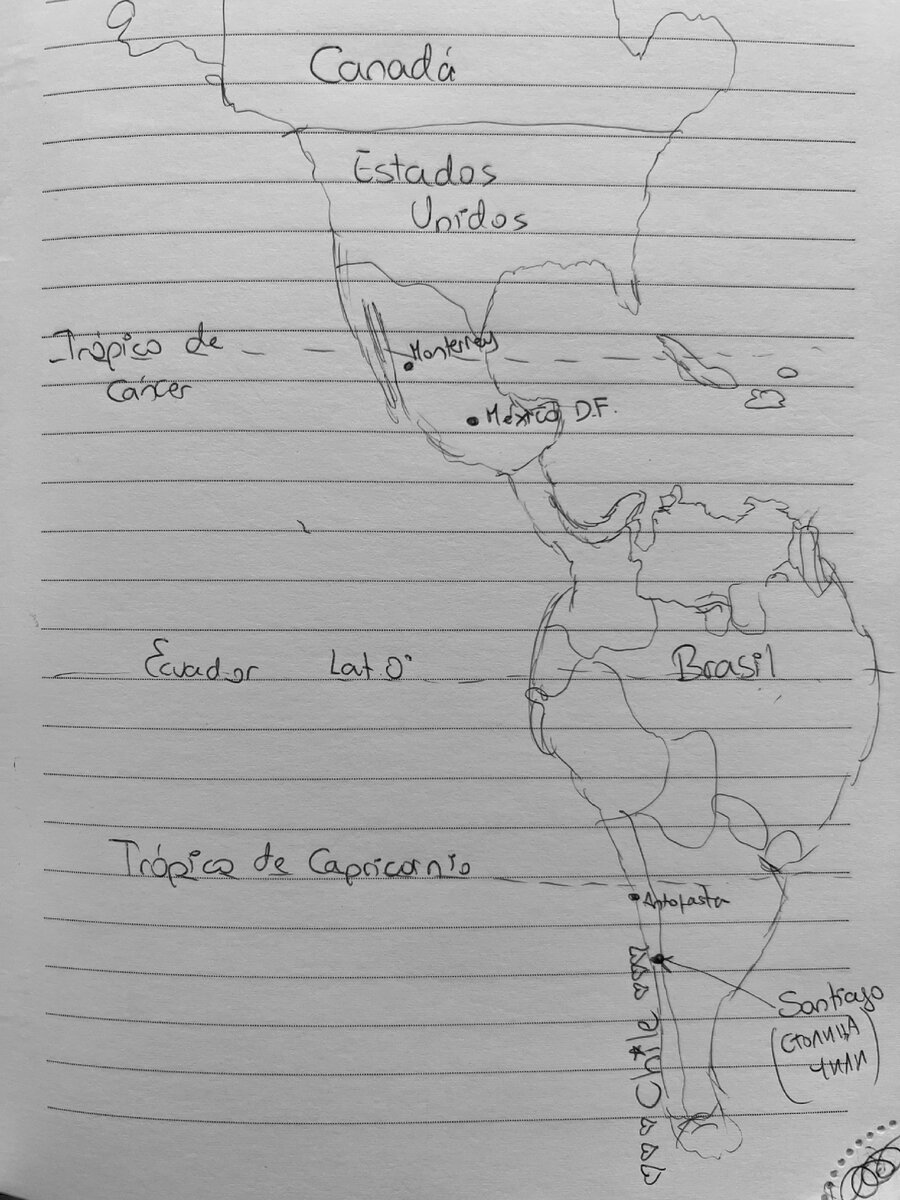 Canadá
Estados
Unidos
Trópico de
Cáncer
Monterrey
México D.F.
Ecuador Lat 0°
Brasil
Trópico de Capricornio
Antofasta
Santiago
(СТОЛИЦА
ЧИЛИ)
Chile